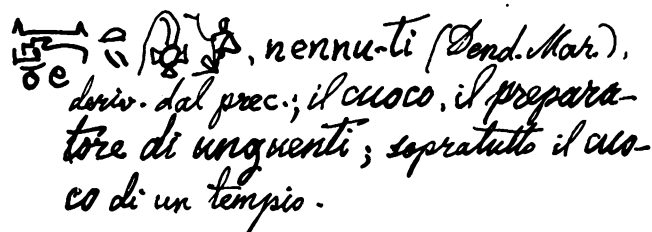 , nennu-ti (Dend. Mar.),
deriv. dal prec.; il cuoco, il prepara-
tore di unguenti; sopratutto il cuo-
co di un tempio.